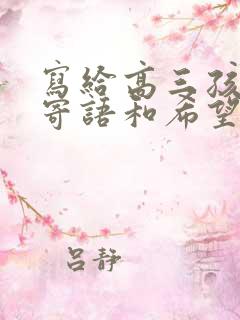 寫給高三孩
寄語和希望
呂靜